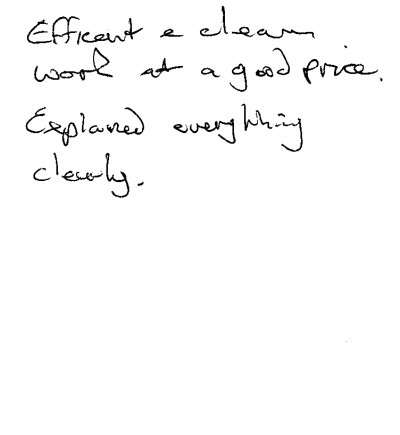 Efficent & clean
work at a good price.
Explained everything
clearly.